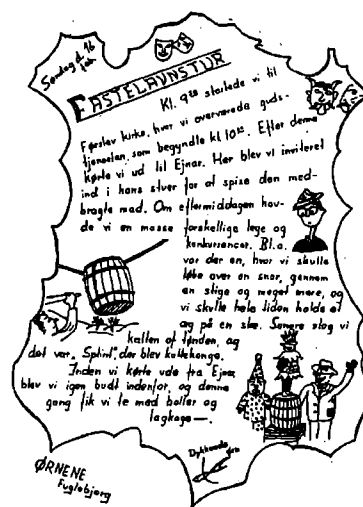 Søndag d. 16
feb.
FASTELAVNSTUR
Kl. 9²⁰ startede vi til
Førslev kirke, hvor vi overværede guds-
tjenesten, som begyndte kl 10³⁰. Efter denne
kørte vi ud til Ejnar. Her blev vi inviteret
ind i hans stuer for at spise den med-
bragte mad. Om eftermiddagen hav-
de vi en masse forskellige lege og
konkurrencer. Bl.a.
var der en, hvor vi skulle
løbe over en snor, gennem
en stige og meget mere, og
vi skulle hele tiden holde et
æg på en ske. Senere slog vi
katten af tønden, og
det var "Splint", der blev kattekonge.
Inden vi kørte ude fra Ejnar,
blev vi igen budt indenfor, og denne
gang fik vi te med boller og
lagkage—.
ØRNENE
Fuglebjerg